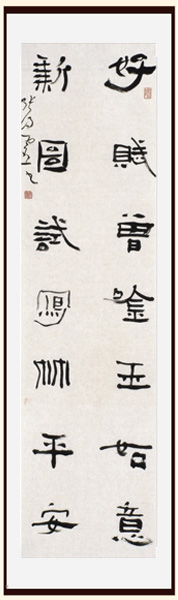 好賦曾唫玉如意
新圖試寫竹平安